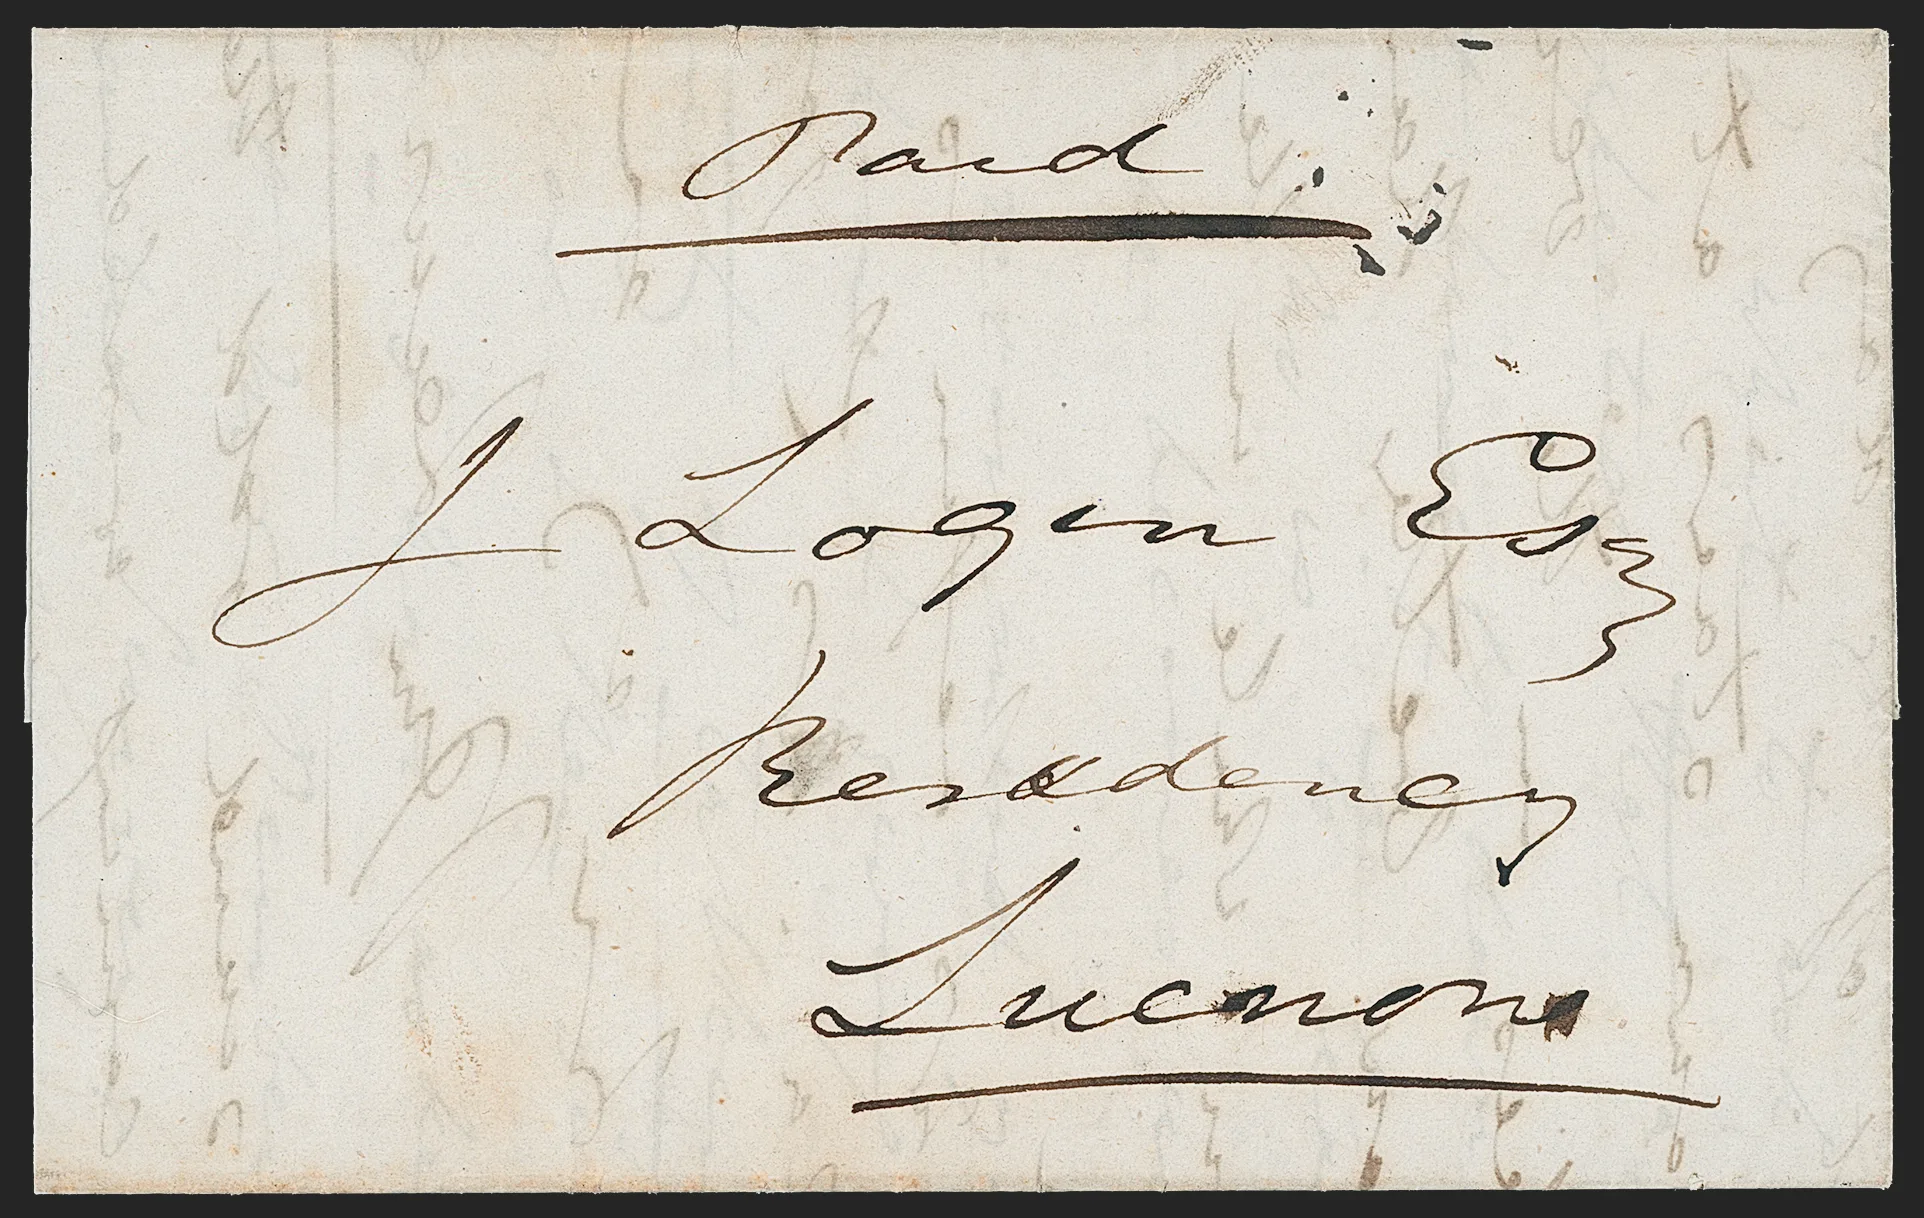 Paid
J Login Esq
Residency
Lucnow